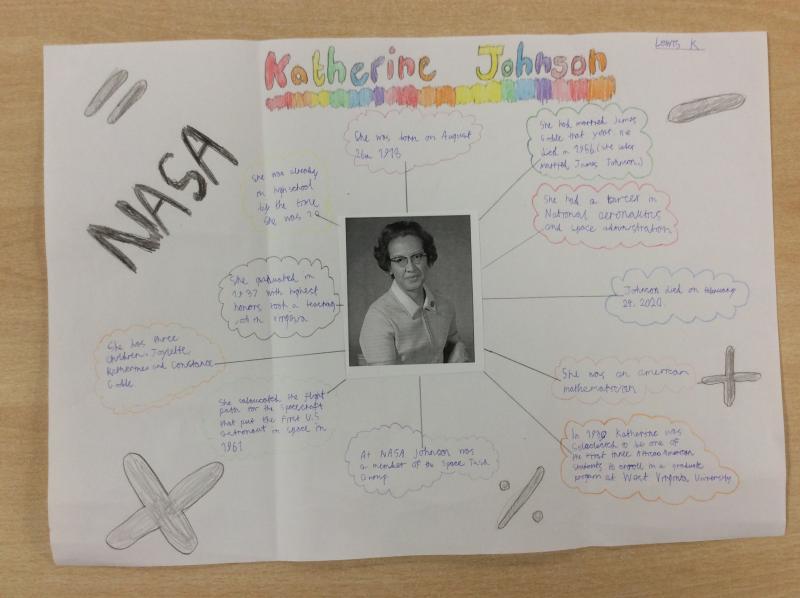 Lewis K
Katherine Johnson
NASA
She was born on August
26th 1918
She had married James
Goble that year. He
died in 1956. (She later
married James Johnson.)
She was already
in highschool
by the time
she was 10
She had a career in
National aeronautics
and space administration
She graduated in
1937 with highest
honors took a teaching
in Virginia
Johnson died on February
24. 2020
She has three
children: Joylette
Katherine and Constance
Goble
She was an american
mathematician
She calculated the flight
path for the spacecraft
that put the first U.S
astronaut in space in
1961
At NASA Johnson was
a member of the Space Task
Group
In Katherine was
to be one of
the first three African American
students to enroll in a graduate
program at West Virginia University